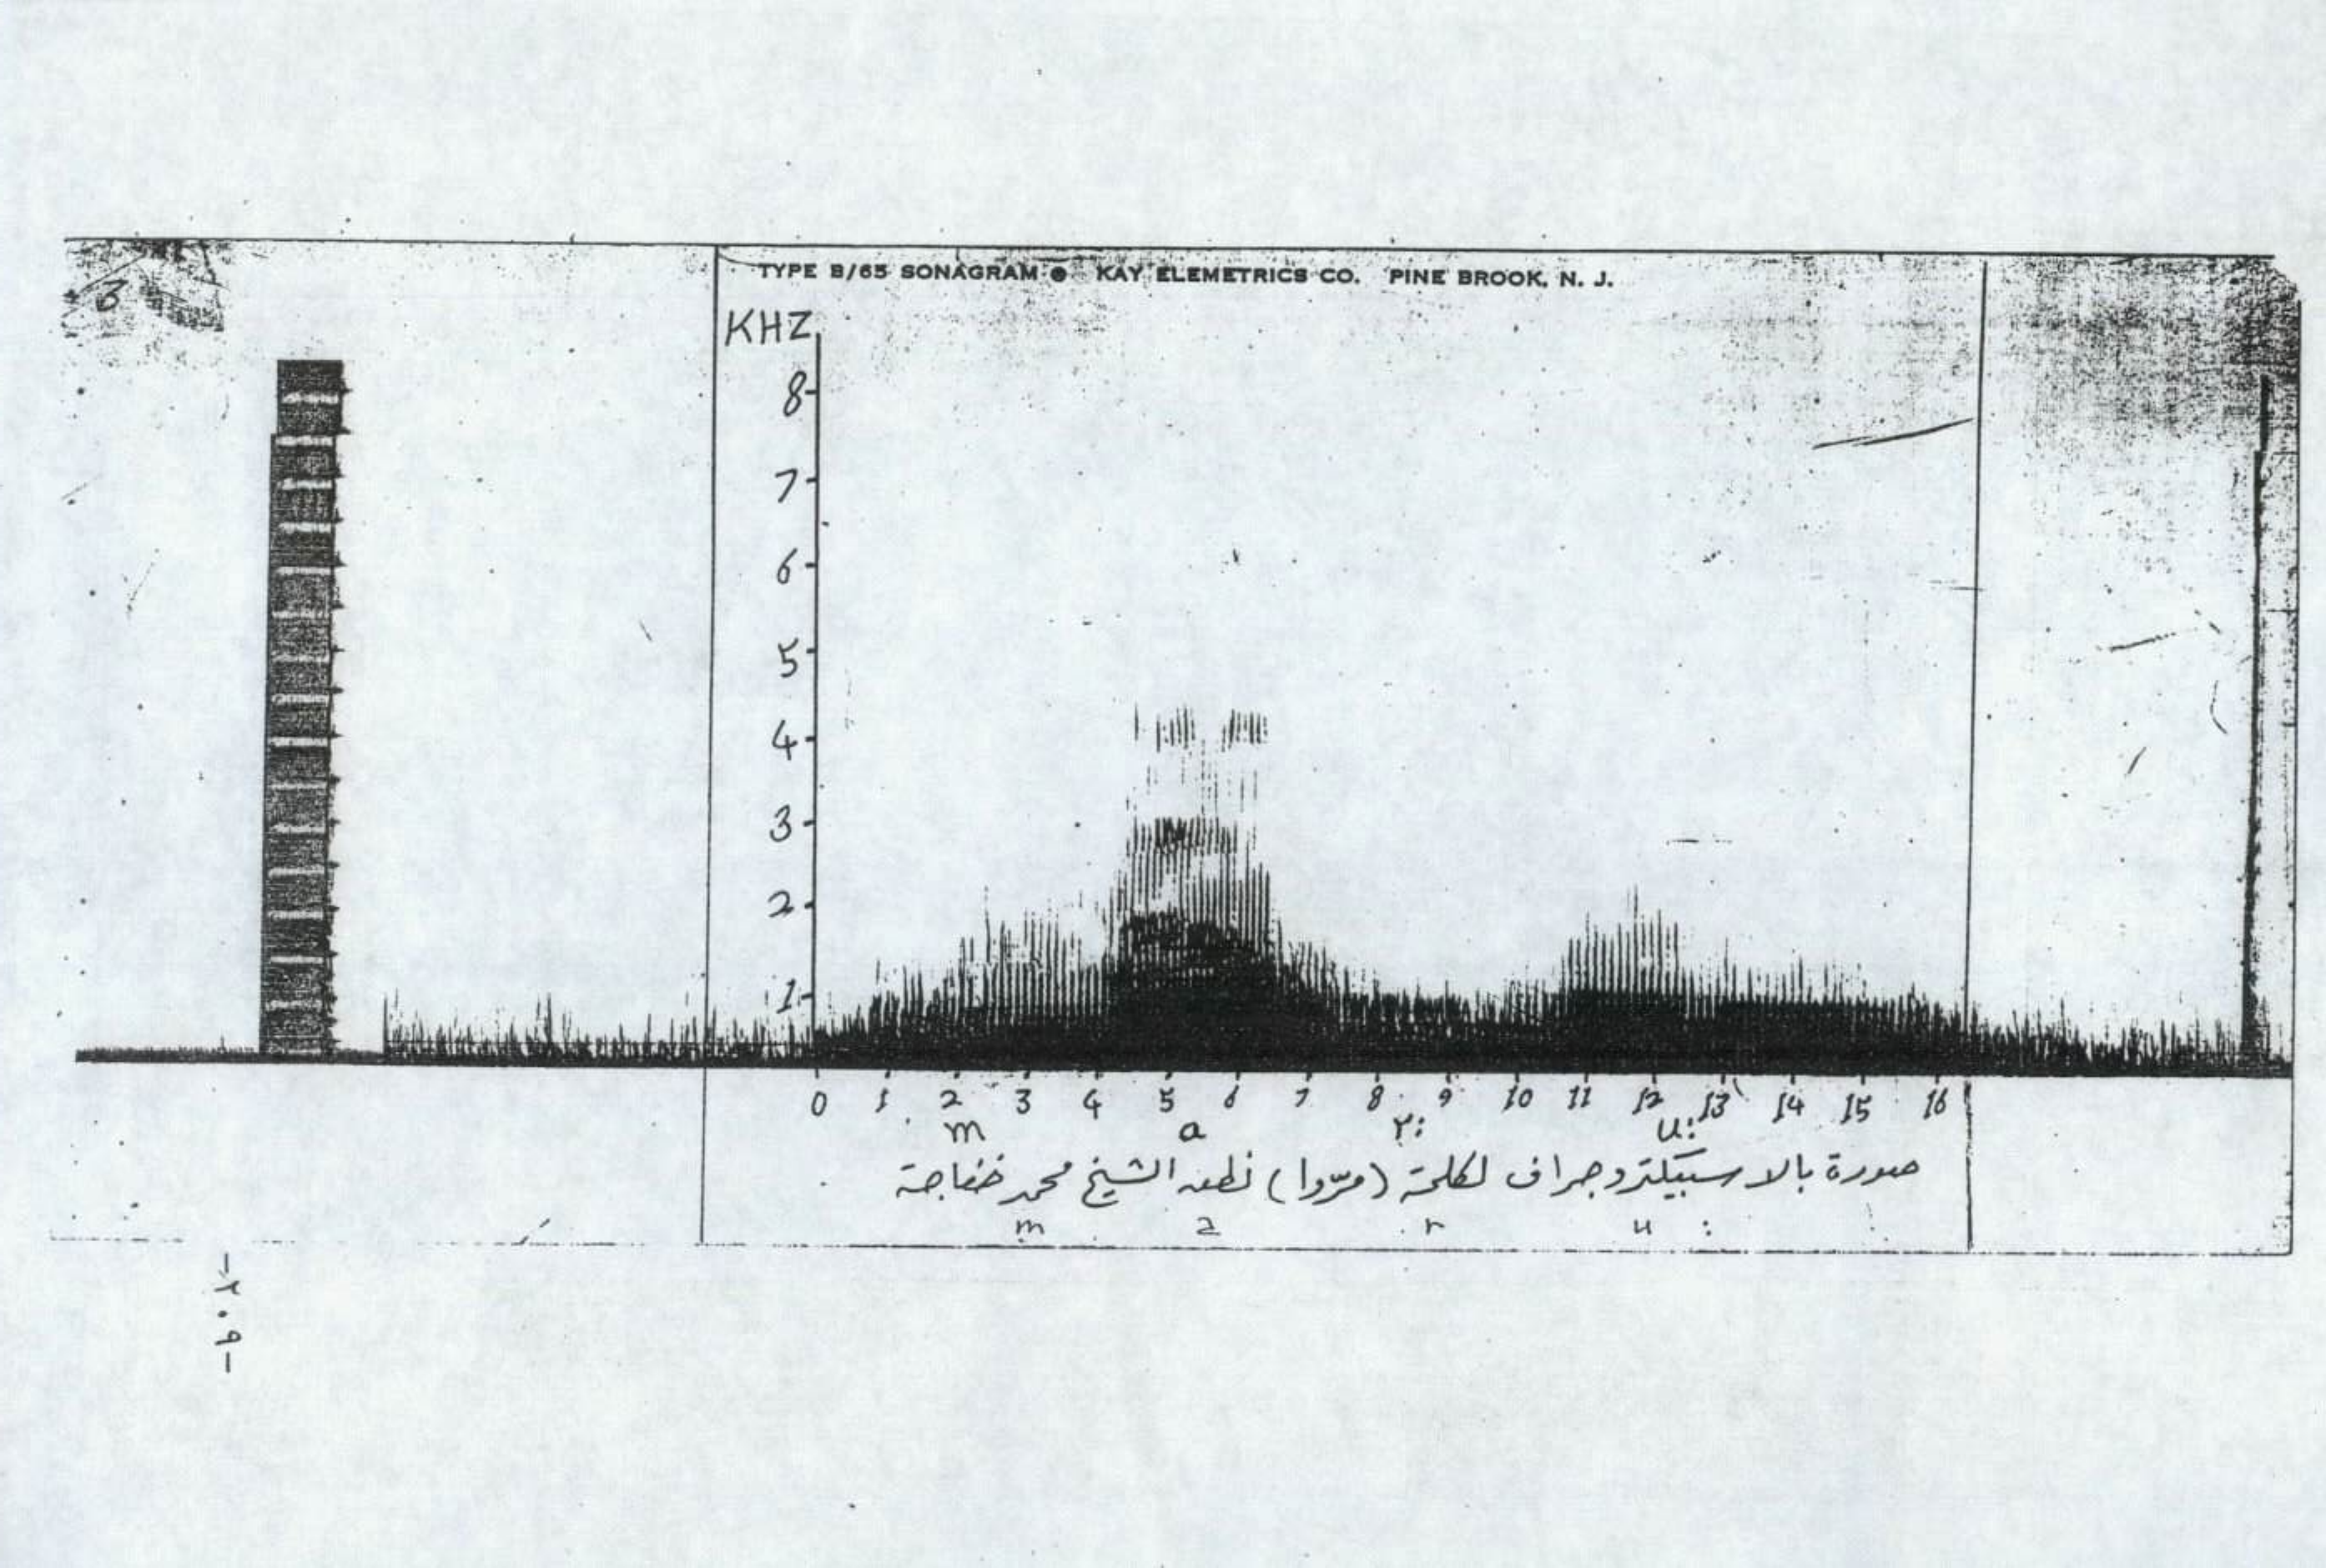 TYPE B/65 SONAGRAM ® KAY ELEMETRICS CO. PINE BROOK, N. J.
KHZ
8
7
6
5
4
3
2
1
0 1 2 3 4 5 6 7 8 9 10 11 12 13 14 15 16
m a r: u:
صورة بالاسبيكتروجراف لكلمة (مرّوا) نطق الشيخ محمد خفاجة
m a r u :
-٢٠٩-